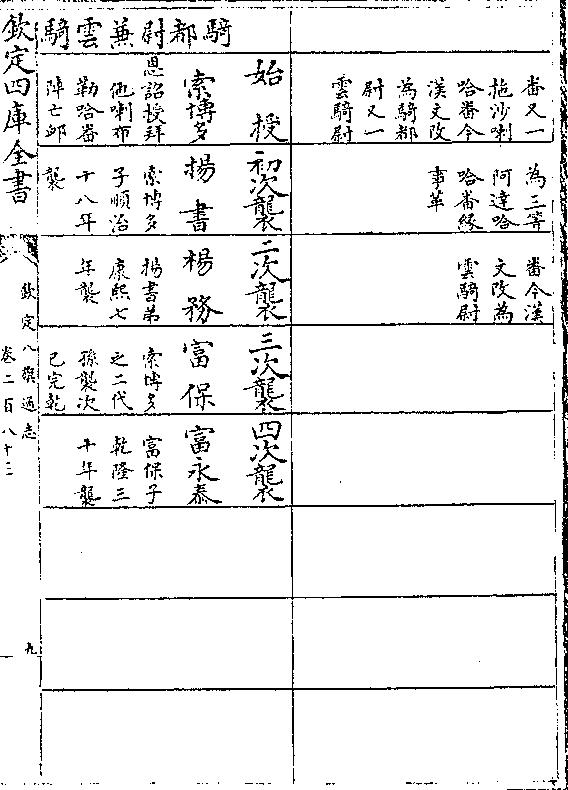 畨又一
拖沙喇
哈畨今
漢文改
為騎都
尉又一
雲騎尉
為三等
阿達哈
哈畨緣
事革
畨今漢
文改為
雲騎尉
騎都尉兼雲騎
始授
索博多
恩詔授拜
他喇布
勒哈畨
陣亡卹
初次襲
揚書
索博多
子順治
十八年
襲
二次襲
楊務
揚書弟
康熙七
年襲
三次襲
富保
索博多
之二代
孫襲次
已完乾
四次襲
富永泰
富保子
乾隆三
十年襲
欽定四庫全書
欽定八旗通志
卷二百八十三
九